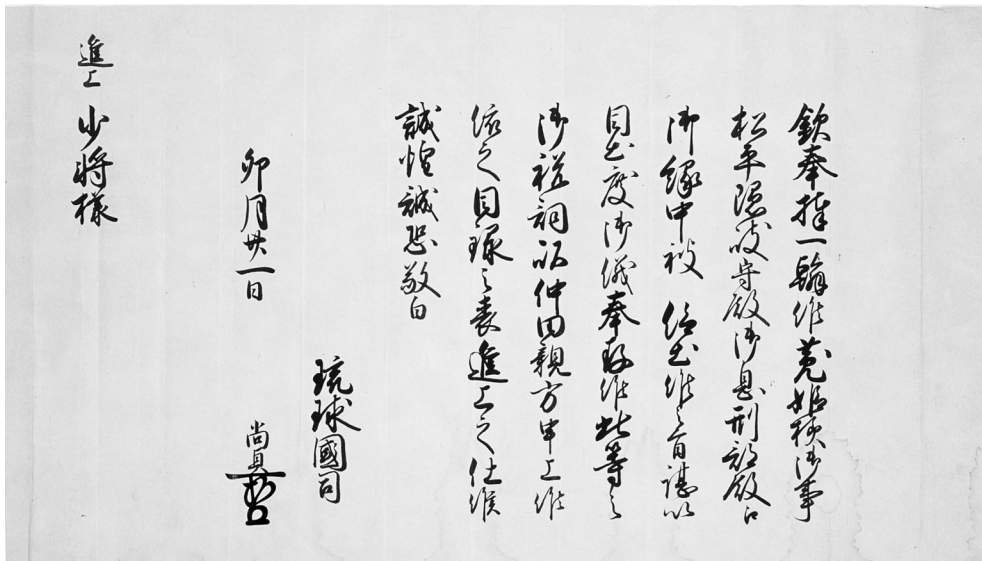 欽奉捧一翰候菟姫様御事
松平隠岐守殿御息刑部殿江
御縁中被 仰出候之旨謹以
目出度御儀奉存候此等之
御祝詞以仲田親方申上候
依之目録之表進上之仕候
誠惶誠恐敬白
琉球國司
卯月廿一日 尚貞
進上 少将様